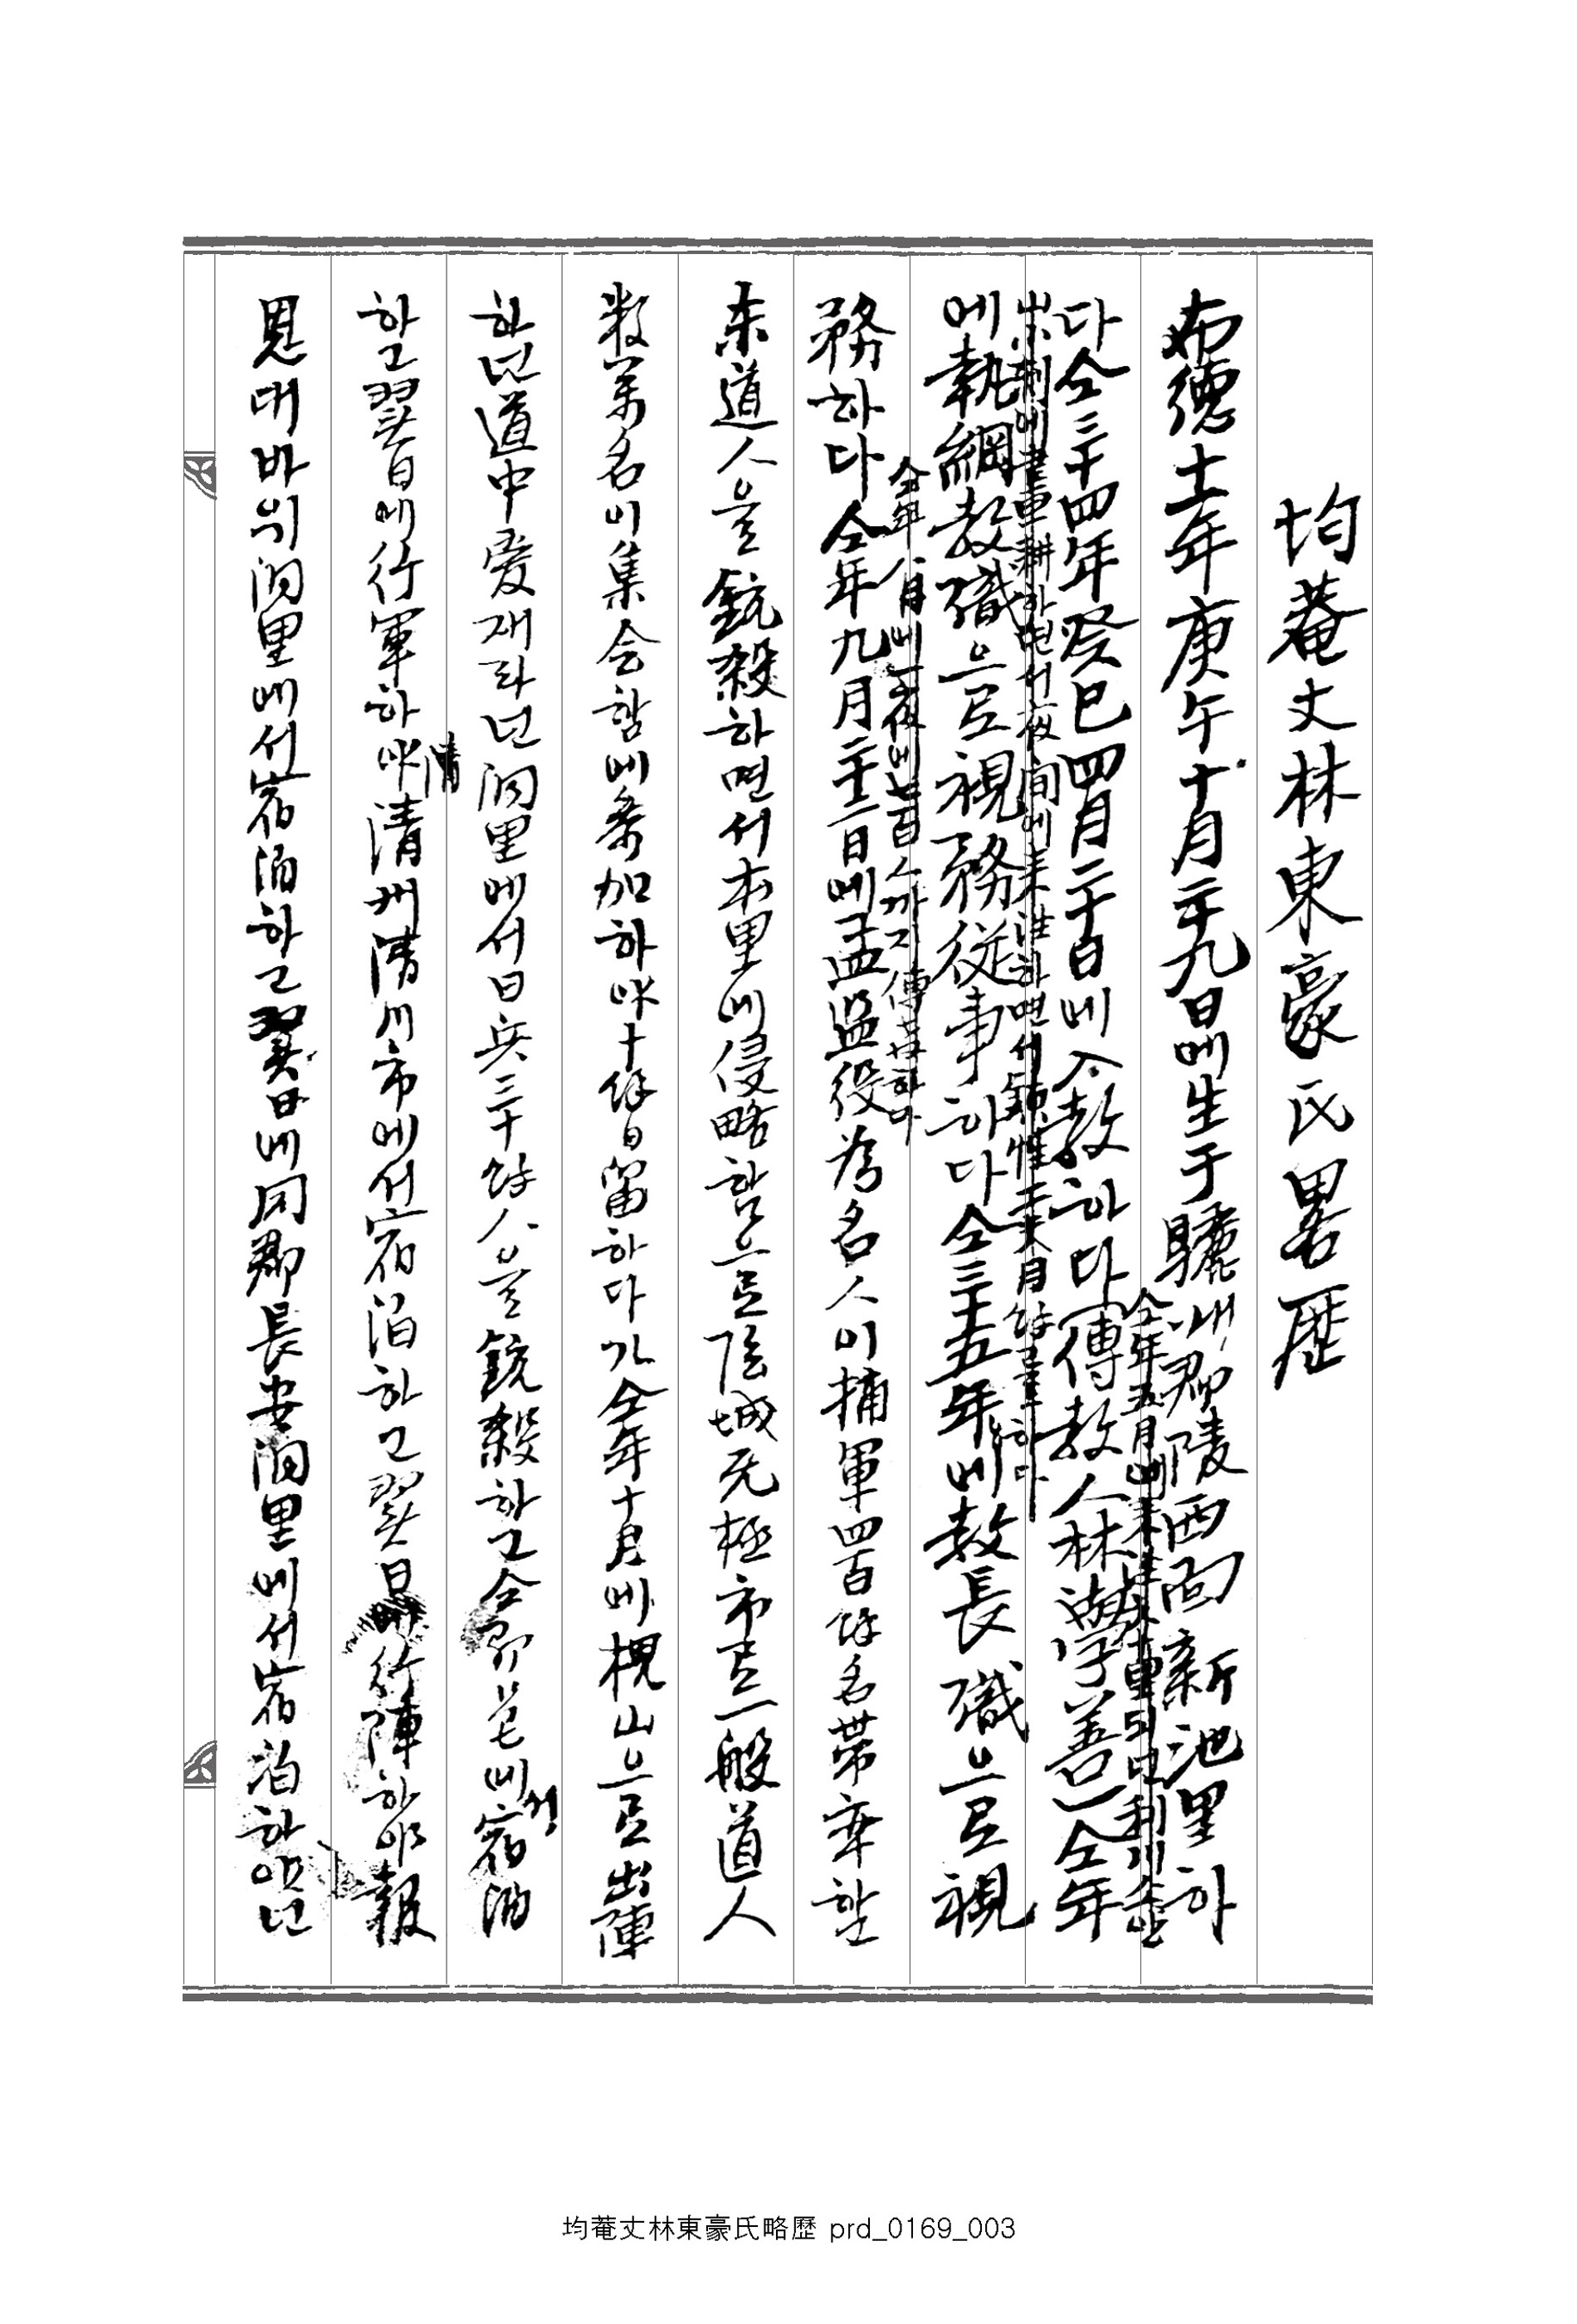 均菴丈林東豪氏畧歷
布德十一年庚午十月二十九日에生于驪州郡陵西面新池里하
다仝三十四年癸巳四月二十日에入敎하다(傳敎人林學善)仝年
仝年五月에
에執綱敎職으로視務從事하다仝三十五年에敎長職으로視
務하다仝年九月二十二日에孟監役為名人이捕軍四百餘名帶率하고
仝年八月에一夜에七百人까지傳敎하다
東道人을銃殺하면서本里에侵略함으로陰城无極市로一般道人
數萬名이集會함에參加하야十餘日留하다가仝年十月에槐山으로出陣
하던道中爱재라던洞里에서日兵三十餘人을銃殺하고仝郡邑에서宿泊
하고翌日에行軍하야淸州淸川市에서宿泊하고翌日에行陣하야報
恩대바위洞里에서宿泊하고翌日에同郡長安洞里에서宿泊하얏던
均菴丈林東豪氏略歷 prd_0169_003